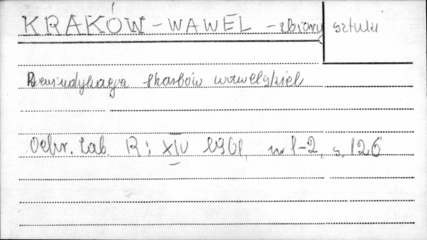 KRAKÓW - WAWEL - zbiory sztuki
Rewindykacja skarbów wawelskich
Ochr. Zab. R: XIV 1961, nr 1-2, s. 126